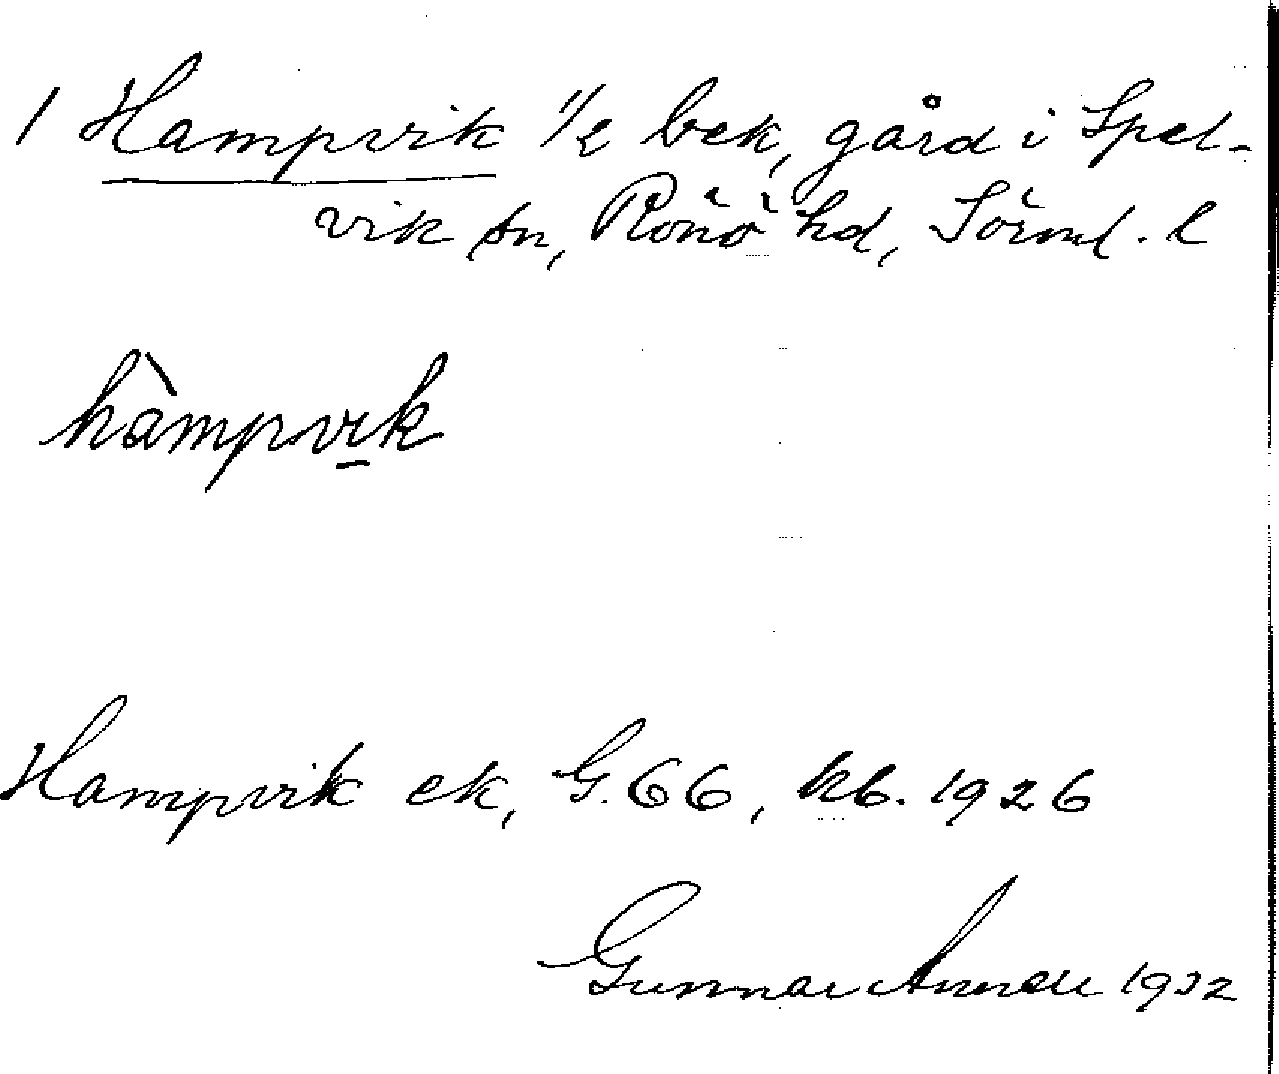 1 Hampvik 1/2 bek, gård i Spel-
vik sn, Rönö hd, Sörml. l
hàmpvi̱k
Hampvik ek, G. 66, kb. 1926
Gunnar 1932